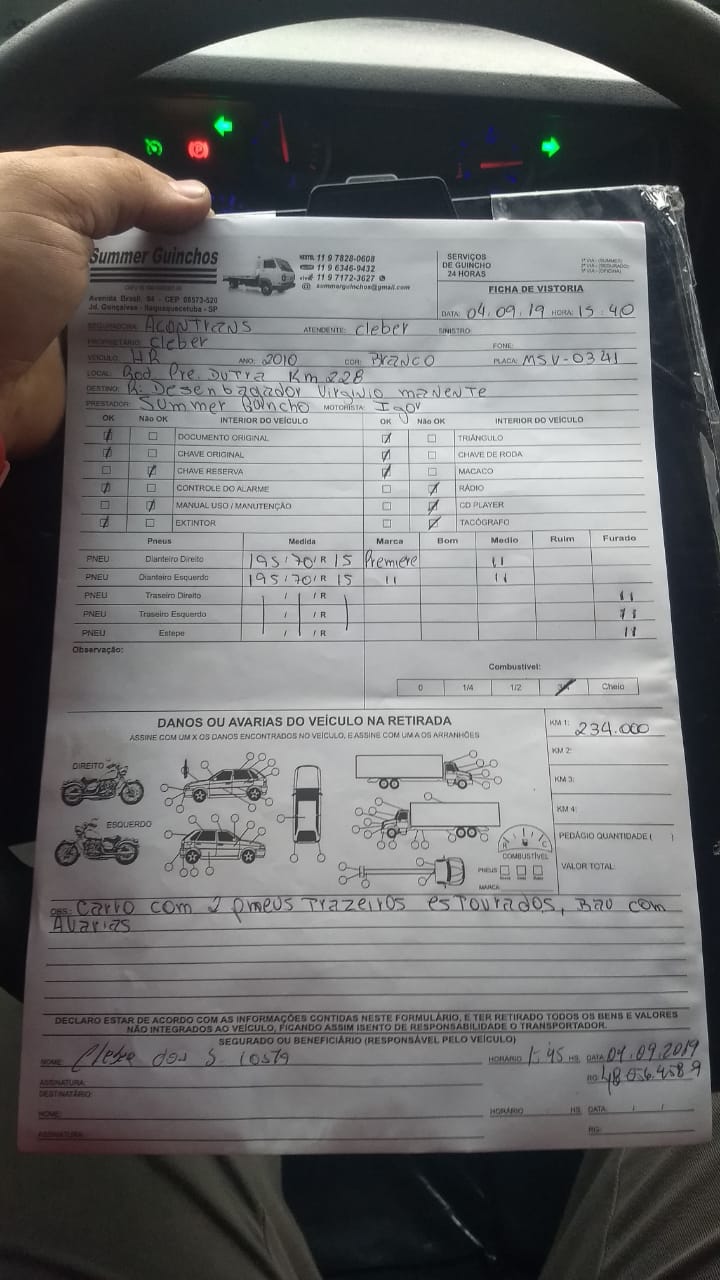 Summer Guinchos
11 9 7828-0608
11 9 6346-9432
11 9 7172-3627
@ summerguinchos@gmail.com
SERVIÇOS
DE GUINCHO
24 HORAS
Avenida Brasil, 94 - CEP 08573-520
Jd. Gonçalves - Itaquaquecetuba - SP
FICHA DE VISTORIA
DATA: 04.09.19 HORA: 15:40
SEGURADORA: ACONTRANS ATENDENTE: Cleber SINISTRO:
PROPRIETÁRIO: Cleber FONE:
VEÍCULO: HR ANO: 2010 COR: BRANCO PLACA: MSV-0341
LOCAL: Rod Pre. DUTRA Km 228
DESTINO: R. Desenbagador Virginio manente
PRESTADOR: Summer Guincho MOTORISTA: Igor
OK Não OK INTERIOR DO VEÍCULO OK Não OK INTERIOR DO VEÍCULO
DOCUMENTO ORIGINAL TRIÂNGULO
CHAVE ORIGINAL CHAVE DE RODA
CHAVE RESERVA MACACO
CONTROLE DO ALARME RÁDIO
MANUAL USO / MANUTENÇÃO CD PLAYER
EXTINTOR TACÓGRAFO
Pneus Medida Marca Bom Medio Ruim Furado
PNEU Dianteiro Direito 195/70/R 15 Premiere 11
PNEU Dianteiro Esquerdo 195/70/R 15 11 11
PNEU Traseiro Direito / / R 11
PNEU Traseiro Esquerdo / / R 11
PNEU Estepe / / R 11
Observação:
Combustível:
0 1/4 1/2 3/4 Cheio
DANOS OU AVARIAS DO VEÍCULO NA RETIRADA
ASSINE COM UM X OS DANOS ENCONTRADOS NO VEÍCULO, E ASSINE COM UM A OS ARRANHÕES
KM 1: 234.000
KM 2:
KM 3:
KM 4:
PEDÁGIO QUANTIDADE ( )
VALOR TOTAL:
DIREITO
ESQUERDO
COMBUSTÍVEL
PNEUS
MARCA:
OBS: Carro com 2 pneus Trazeiros esTourados, BAU com
AVarias
DECLARO ESTAR DE ACORDO COM AS INFORMAÇÕES CONTIDAS NESTE FORMULÁRIO, E TER RETIRADO TODOS OS BENS E VALORES
NÃO INTEGRADOS AO VEÍCULO, FICANDO ASSIM ISENTO DE RESPONSABILIDADE O TRANSPORTADOR.
SEGURADO OU BENEFICIÁRIO (RESPONSÁVEL PELO VEÍCULO)
NOME: Clebe dos S. Costa HORÁRIO HS. DATA: 04.09.2019
ASSINATURA: RG: 48.056.458 9
DESTINATÁRIO:
NOME: HORÁRIO HS. DATA: / /
ASSINATURA: RG: